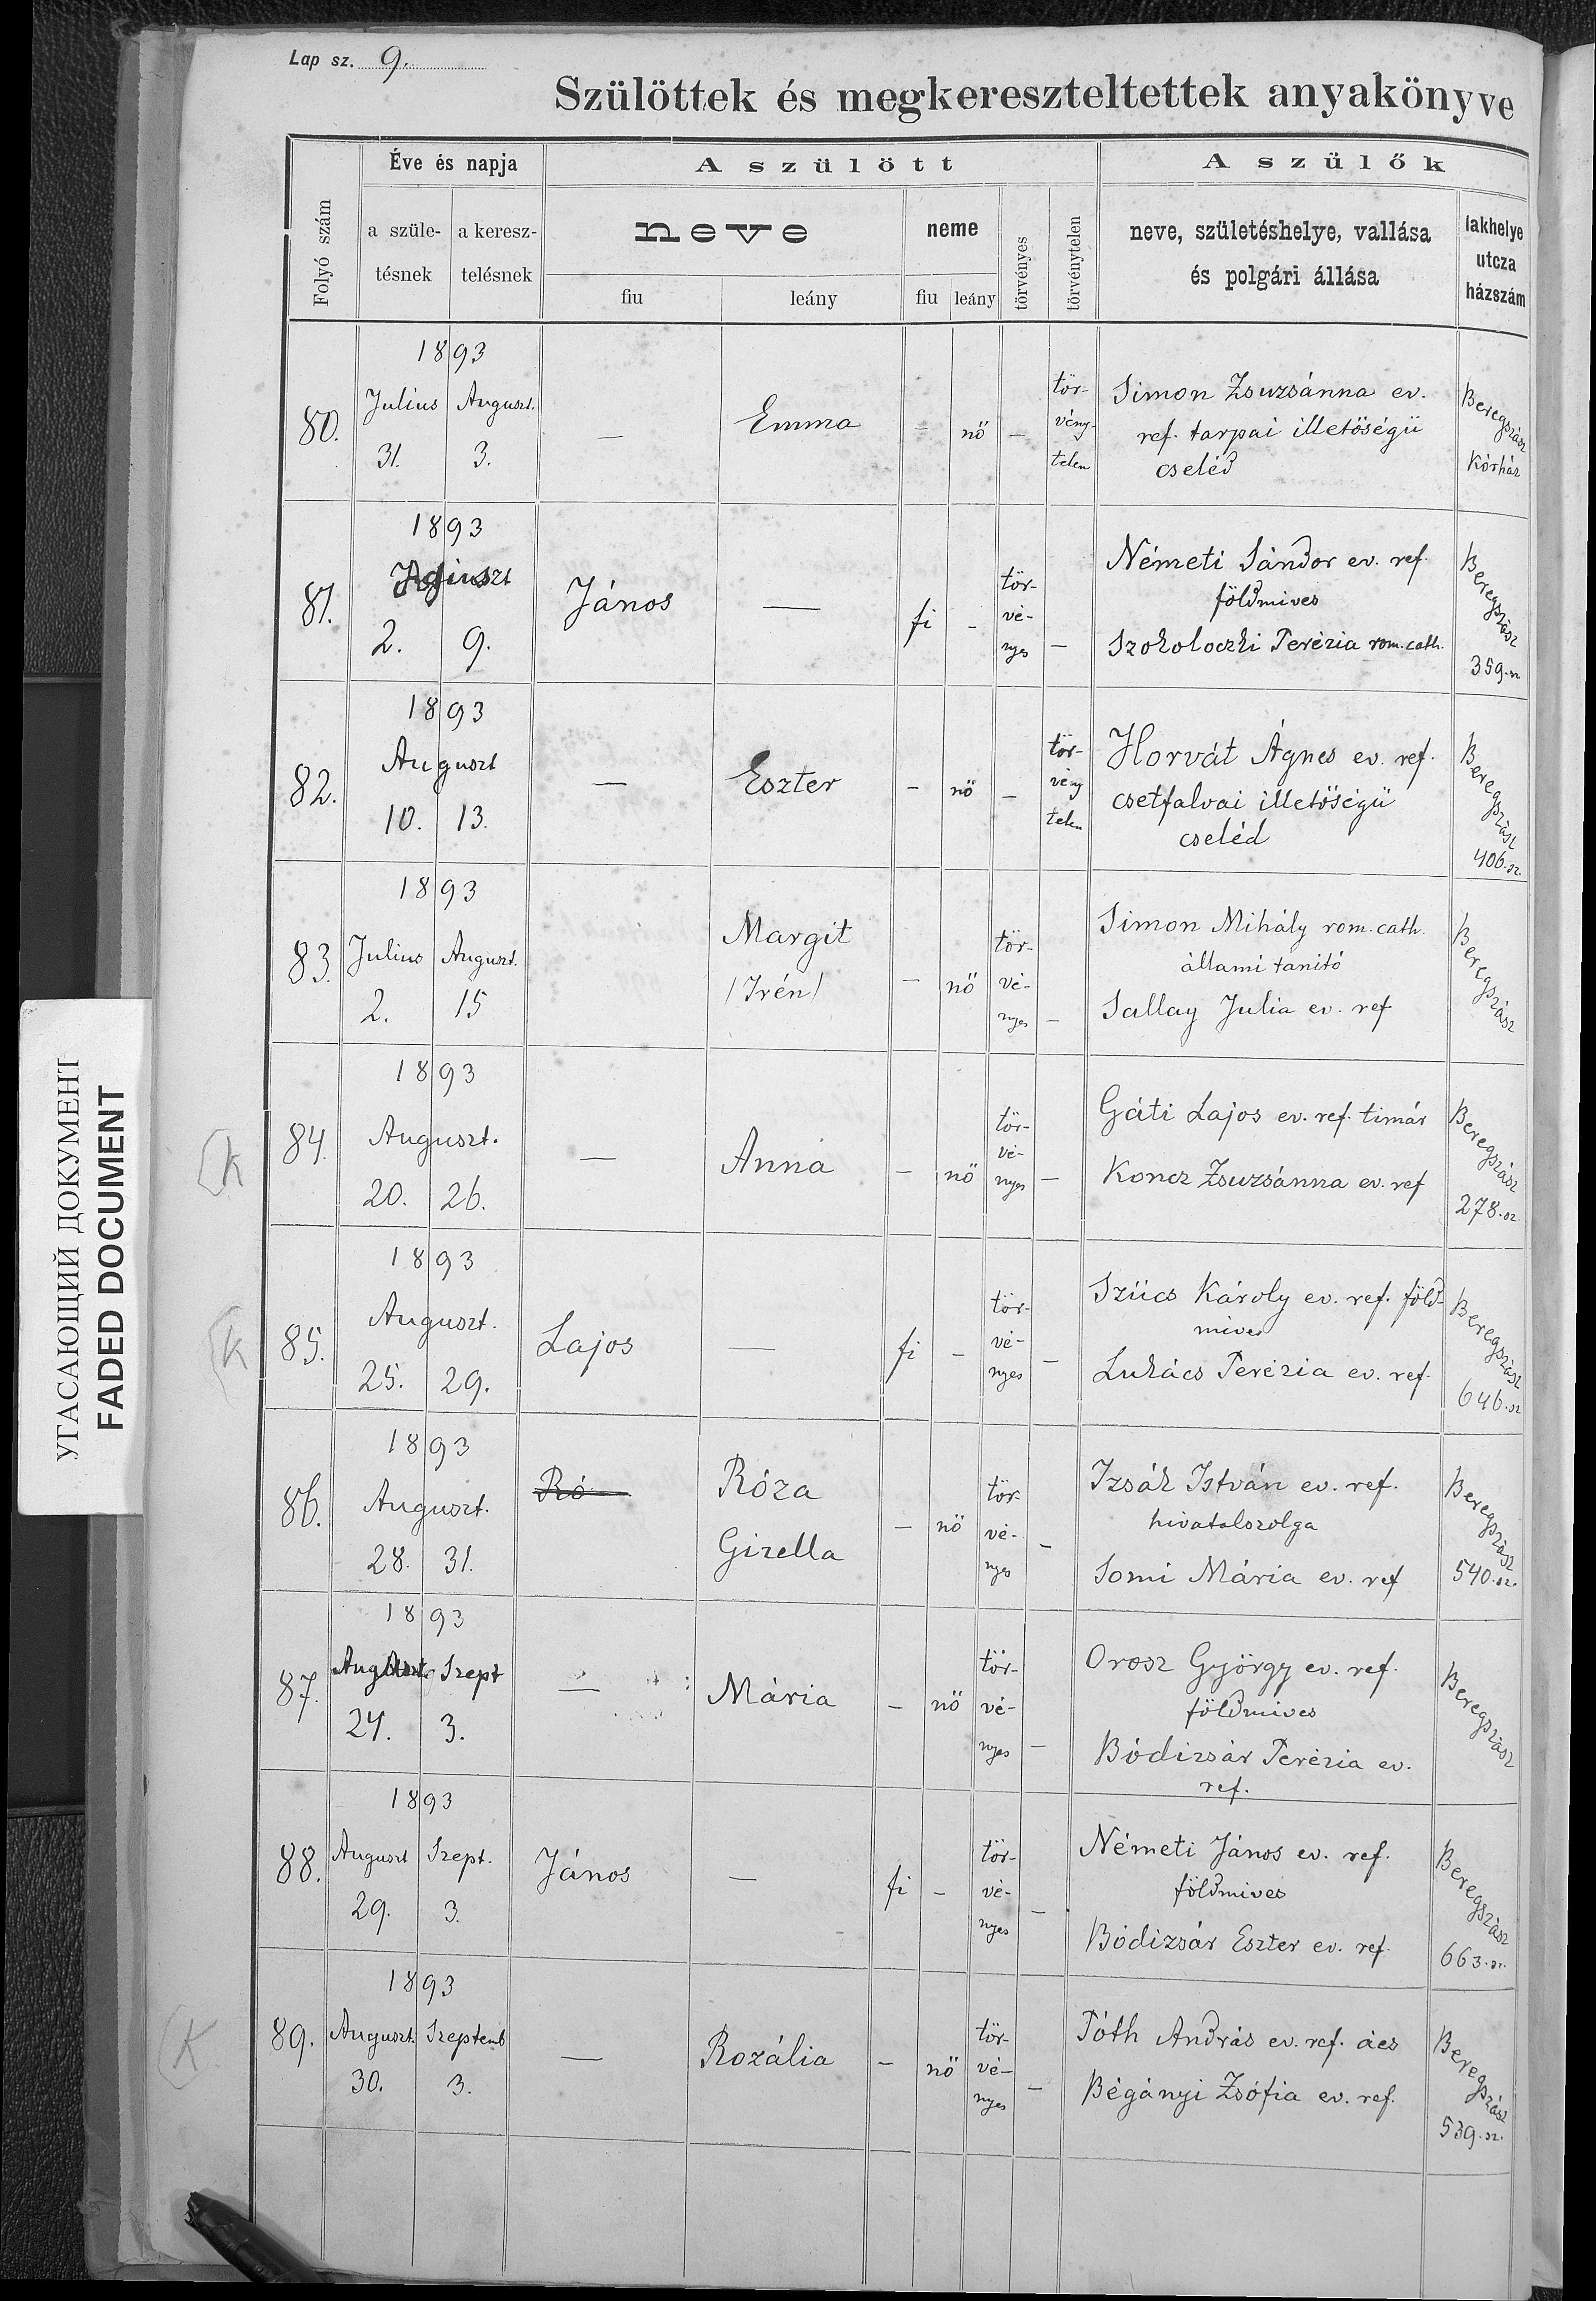 Lap sz. 9.
Szülöttek és megkereszteltettek anyakönyve
Folyó szám
Éve és napja
a szüle-
tésnek
a keresz-
telésnek
A szülött
neve
fiu
leány
neme
fiu
leány
törvényes
törvénytelen
A szülők
neve, születéshelye, vallása
és polgári állása
lakhelye
utcza
házszám
80.
1893
Julius Auguszt.
31. 3.
—
Emma
– nő –
tör-
vény-
telen
Simon Zsuzsánna ev.
ref. tarpai illetőségü
cseléd
Beregszász
Kórház
81.
1893
Auguszt
2. 9.
János
—
fi –
tör-
vé-
nyes –
Németi Sándor ev. ref.
földmives
Szokoloczki Terézia rom. cath.
Beregszász
359. sz
82.
1893
Auguszt
10. 13.
—
Eszter
– nő –
tör-
vény
telen
Horvát Ágnes ev. ref.
csetfalvai illetőségü
cseléd
Beregszász
406. sz.
83.
1893
Julius Auguszt.
2. 15
Margit
/Irén/
– nő
tör-
vé-
nyes –
Simon Mihály rom. cath.
állami tanitó
Sallay Julia ev. ref
Beregszász
K
84.
1893
Auguszt.
20. 26.
—
Anna
– nő
tör-
vé-
nyes –
Gáti Lajos ev. ref. timár
Koncz Zsuzsánna ev. ref
Beregszász
278. sz.
K
85.
1893
Auguszt.
25. 29.
Lajos
—
fi –
tör-
vé-
nyes –
Szücs Károly ev. ref. föld-
mives
Lukács Terézia ev. ref.
Beregszász
646. sz
86.
1893
Auguszt.
28. 31.
Ró
Róza
Gizella
– nő
tör-
vé-
nyes –
Izsák István ev. ref.
hivatalszolga
Somi Mária ev. ref
Beregszász
540. sz.
87.
1893
Auguszt Szept
24. 3.
—
Mária
– nő
tör-
vé-
nyes –
Orosz György ev. ref.
földmives
Bódizsár Terézia ev.
ref.
Beregszász
88.
1893
Auguszt Szept.
29. 3.
János
—
fi –
tör-
vé-
nyes –
Németi János ev. ref.
földmives
Bódizsár Eszter ev. ref.
Beregszász
663. sz.
K
89.
1893
Auguszt. Szeptemb
30. 3.
—
Rozália
– nő
tör-
vé-
nyes –
Tóth András ev. ref. ács
Bégányi Zsófia ev. ref.
Beregszász
539. sz.
УГАСАЮЩИЙ ДОКУМЕНТ
FADED DOCUMENT